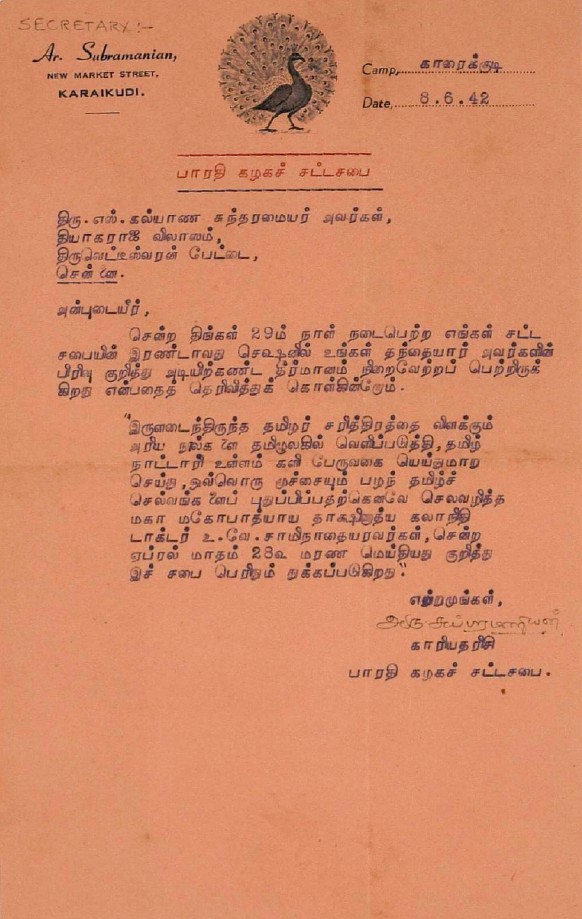 SECRETARY :-
Ar. Subramanian,
NEW MARKET STREET,
KARAIKUDI.
Camp, காரைக்குடி
Date, 8.6.42
பாரதி கழகச் சட்டசபை
திரு.எஸ்.கல்யாண சுந்தரமையர் அவர்கள்,
தியாகராஜ விலாஸம்,
திருவெட்டீஸ்வரன் பேட்டை,
சென்னை.
அன்புடையீர்,
சென்ற திங்கள் 29ம் நாள் நடைபெற்ற எங்கள் சட்ட
சபையின் இரண்டாவது செஷனில் உங்கள் தந்தையார் அவர்களின்
பிரிவு குறித்து அடியிற்கண்ட தீர்மானம் நிறைவேற்றப் பெற்றிருக்
கிறது என்பதைத் தெரிவித்துக் கொள்கின்றேம்.
"இருளடைந்திருந்த தமிழர் சரித்திரத்தை விளக்கும்
அரிய நூல்களை தமிழுலகில் வெளிப்படுத்தி,தமிழ்
நாட்டாரி உள்ளம் களி பேருவகை யெய்துமாறு
செய்து,ஒவ்வொரு மூச்சையும் பழந் தமிழ்ச்
செல்வங்களைப் புதுப்பிப்பதற்கெனவே செலவழித்த
மகா மகோபாத்யாய தாக்ஷிணாத்ய கலாநிதி
டாக்டர் உ.வே.சாமிநாதையரவர்கள்,சென்ற
ஏப்ரல் மாதம் 28௳ மரண மெய்தியது குறித்து
இச் சபை பெரிதும் துக்கப்படுகிறது."
என்றுமுங்கள்,
அரு சுப்ரமணியன்
காரியதரிசி
பாரதி கழகச் சட்டசபை.